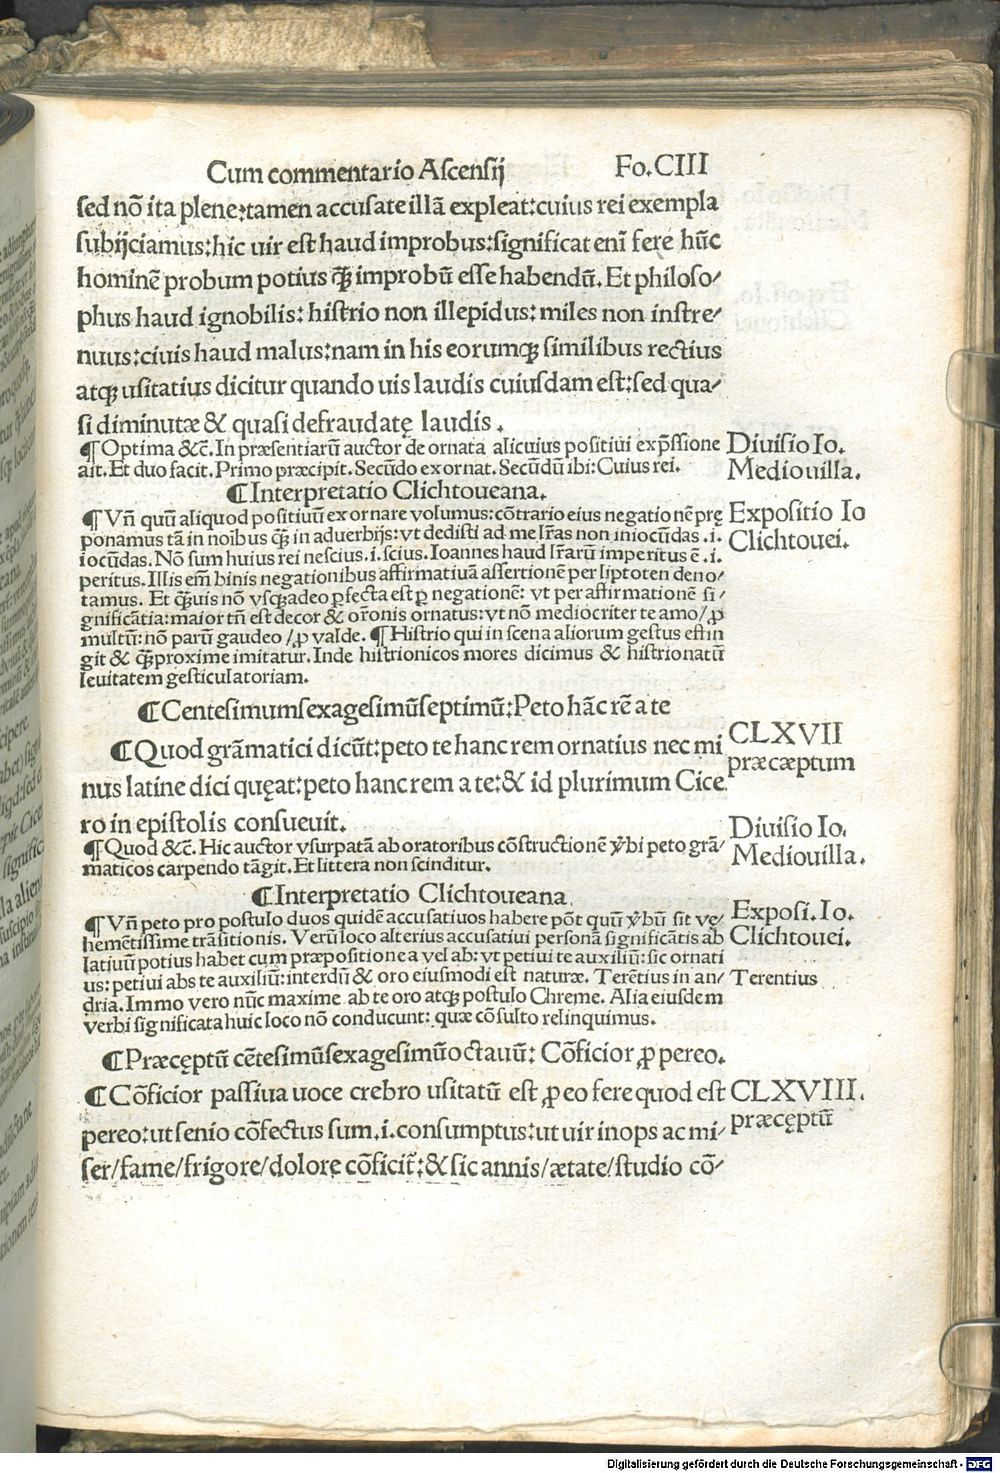 Cum commentario Ascensij Fo.CIII
sed nō ita plene:tamen accusate illā expleat:cuius rei exempla
subijciamus:hic uir est haud improbus:significat enī fere hūc
hominē probum potius ꝙ̄ improbū esse habendū. Et philoso/
phus haud ignobilis: histrio non illepidus: miles non instre/
nuus:ciuis haud malus:nam in his eorumqꝫ similibus rectius
atqꝫ usitatius dicitur quando uis laudis cuiusdam est:sed qua/
si diminutæ & quasi defraudatę laudis.
¶Optima &c̄. In præsentiarū auctor de ornata alicuius positiui exp̄ssione
ait. Et duo facit. Primo præcipit. Secūdo exornat. Secūdū ibi: Cuius rei.
Diuisio Io.
Mediouilla.
¶Interpretatio Clichtoueana.
¶Vn̄ quū aliquod positiuū exornare volumus: cōtrario eius negationē prę
ponamus tā in noibus ꝙ̄ in aduerbijs: vt dedisti ad me l̄ras non iniocūdas .i.
iocūdas. Nō sum huius rei nescius .i. scius. Ioannes haud l̄rarū imperitus ē .i.
peritus. Illis em̄ binis negationibus affirmatiuā assertionē per liptoten deno/
tamus. Et ꝙ̄uis nō vsqꝫadeo ꝑfecta est ꝑ negationē: vt per affirmationē si/
gnificātia: maior tn̄ est decor & or̄onis ornatus: vt nō mediocriter te amo/ ꝓ
multū: nō parū gaudeo / ꝓ valde. ¶Histrio qui in scena aliorum gestus effin
git & ꝙ̄proxime imitatur. Inde histrionicos mores dicimus & histrionatū
leuitatem gesticulatoriam.
Expositio Io
Clichtouei.
¶Centesimumsexagesimūseptimū: Peto hāc rē a te
¶Quod grāmatici dicūt: peto te hanc rem ornatius nec mi
nus latine dici quęat: peto hanc rem a te: & id plurimum Cice
ro in epistolis consueuit.
CLXVII
præcæptum
¶Quod &c̄. Hic auctor vsurpatā ab oratoribus cōstructionē v̄bi peto grā/
maticos carpendo tāgit. Et littera non scinditur.
Diuisio Io.
Mediouilla.
¶Interpretatio Clichtoueana.
¶Vn̄ peto pro postulo duos quidē accusatiuos habere pōt quū v̄bū sit vę/
hemētissime trāsitionis. Verū loco alterius accusatiui personā significātis ab
latiuū potius habet cum præpositione a vel ab: vt petiui te auxiliū: sic ornati
us: petiui abs te auxiliū: interdū & oro eiusmodi est naturæ. Terētius in an/
dria. Immo vero nūc maxime abs te oro atqꝫ postulo Chreme. Alia eiusdem
verbi significata huic loco nō conducunt: quæ cōsulto relinquimus.
Exposi. Io.
Clichtouei.
Terentius
¶Præcęptū cētesimūsexagesimūoctauū: Cōficior ꝓ pereo.
¶Cōficior passiua uoce crebro usitatū est ꝓ eo fere quod est
pereo: ut senio cōfectus sum .i. consumptus: ut uir inops ac mi/
ser/fame/frigore/dolore cōficit̄: & sic annis/ætate/studio cō/
CLXVIII.
præcęptū
Digitalisierung gefördert durch die Deutsche Forschungsgemeinschaft - DFG